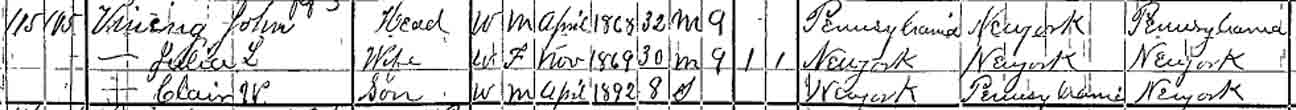 115 115 Vining John Head W M April 1868 32 M 9 Pennsylvania Newyork Pennsylvania
— Julia L Wife W F Nov 1869 30 M 9 1 1 Newyork Newyork Newyork
— Clair W. Son W M April 1892 8 S Newyork Pennsylvania Newyork